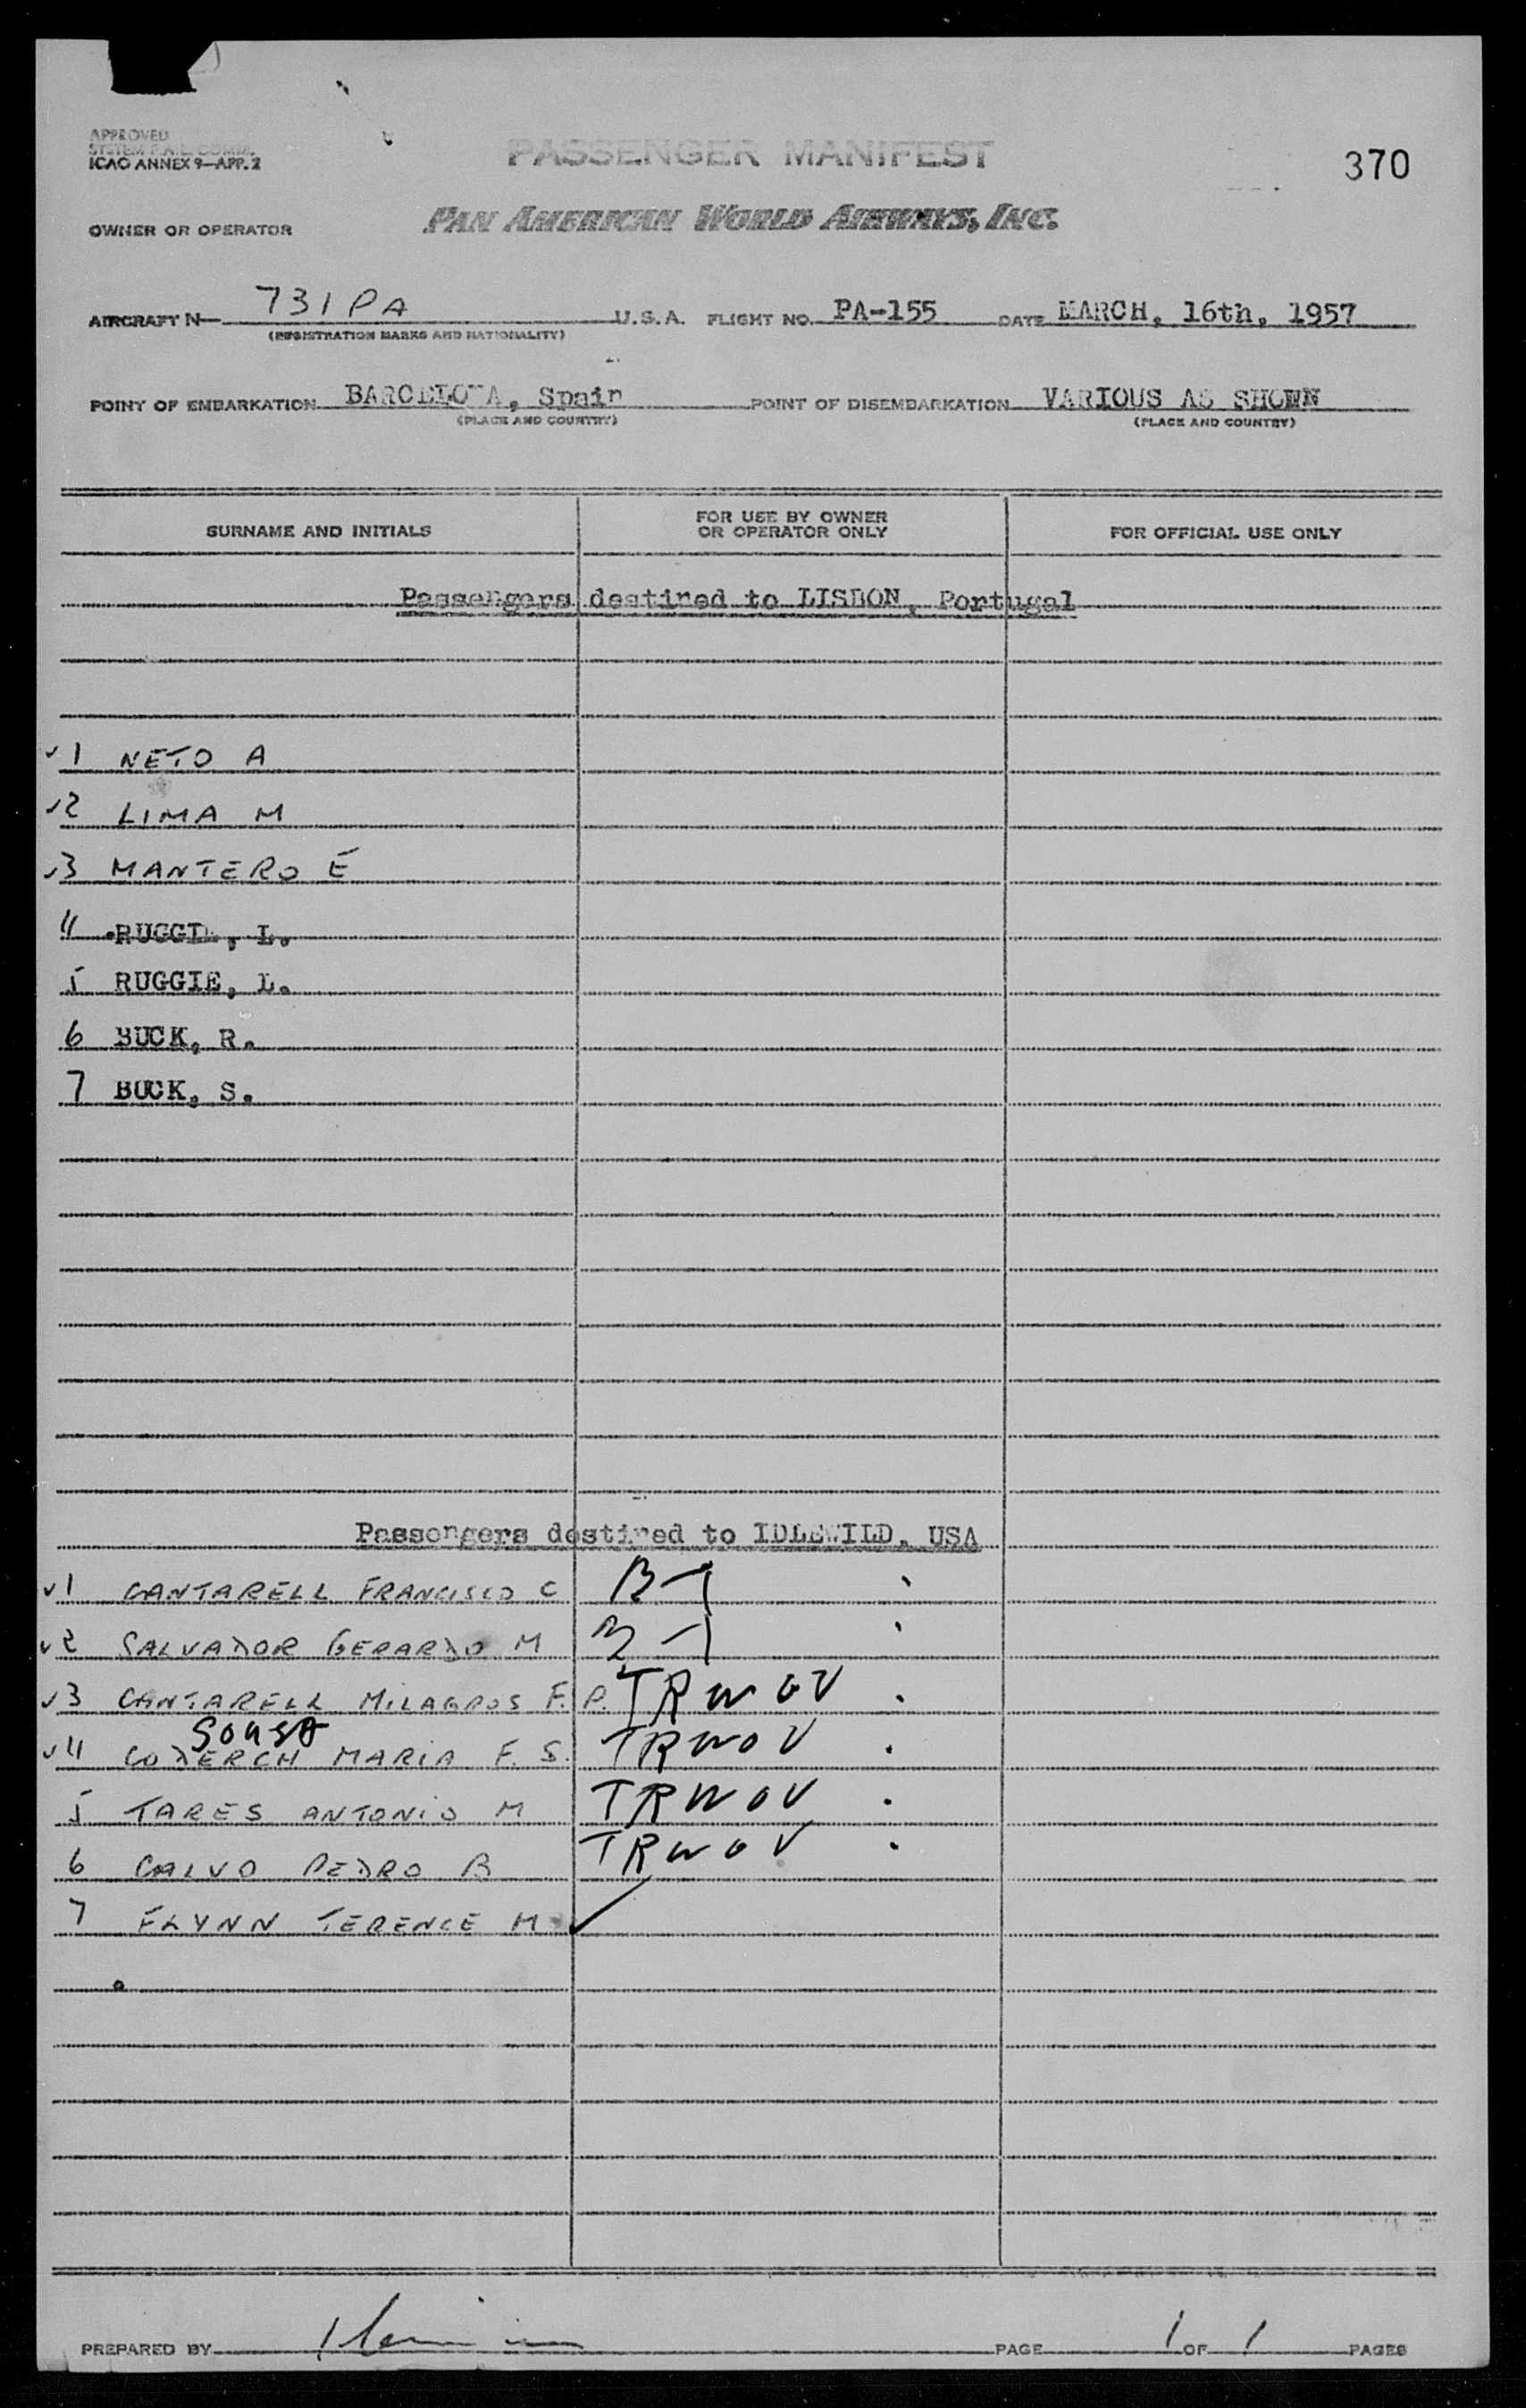 APPROVED
SYSTEM F.A.L. COMM.
ICAO ANNEX 9—APP. 2
PASSENGER MANIFEST
370
OWNER OR OPERATOR PAN AMERICAN WORLD AIRWAYS, INC.
AIRCRAFT N— 731PA U.S.A. FLIGHT NO. PA-155 DATE MARCH, 16th, 1957
(REGISTRATION MARKS AND NATIONALITY)
POINT OF EMBARKATION BARCELONA, Spain POINT OF DISEMBARKATION VARIOUS AS SHOWN
(PLACE AND COUNTRY) (PLACE AND COUNTRY)
SURNAME AND INITIALS FOR USE BY OWNER OR OPERATOR ONLY FOR OFFICIAL USE ONLY
Passengers destined to LISBON, Portugal
✓1 NETO A
✓2 LIMA M
✓3 MANTERO E
4 RUGGIE, L.
5 RUGGIE, L.
6 BUCK, R.
7 BUCK, S.
Passengers destined to IDLEWILD, USA
✓1 CANTARELL FRANCISCO C B-1
✓2 SALVADOR GERARDO M B-1
✓3 CANTARELL MILAGROS F. P. TRWOV
SOUSA
✓4 CODERCH MARIA F. S. TRWOV
5 TARES ANTONIO M TRWOV
6 CALVO PEDRO B TRWOV
7 FLYNN TERENCE M ✓
PREPARED BY PAGE 1 OF 1 PAGES